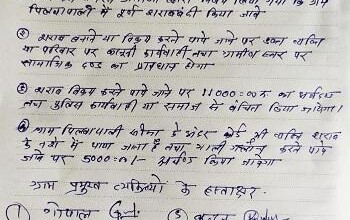 पिपलवापाली में पूर्ण शराबबंदी किया जावे
② शराब बनाने या विक्रय करते पाये जाने पर उक्त व्यक्ति
या परिवार पर कानूनी कार्यवाही तथा ग्रामीण स्तर पर
सामाजिक दण्ड का प्रावधान होगा
③ शराब विक्रय करते पाये जाने पर 11000=00 रु का अर्थदण्ड
तथा पुलिस कार्यवाही या समाज से वंचित किया जावेगा।
④ ग्राम सीमा के अंदर कोई भी व्यक्ति शराब
के नशे में पाए जाता है तथा गाली गलौच करते पाये
जाने पर 5000=0/- अर्थदण्ड किया जावेगा
ग्राम प्रमुख व्यक्तियो के हस्ताक्षर
① गोपाल ③